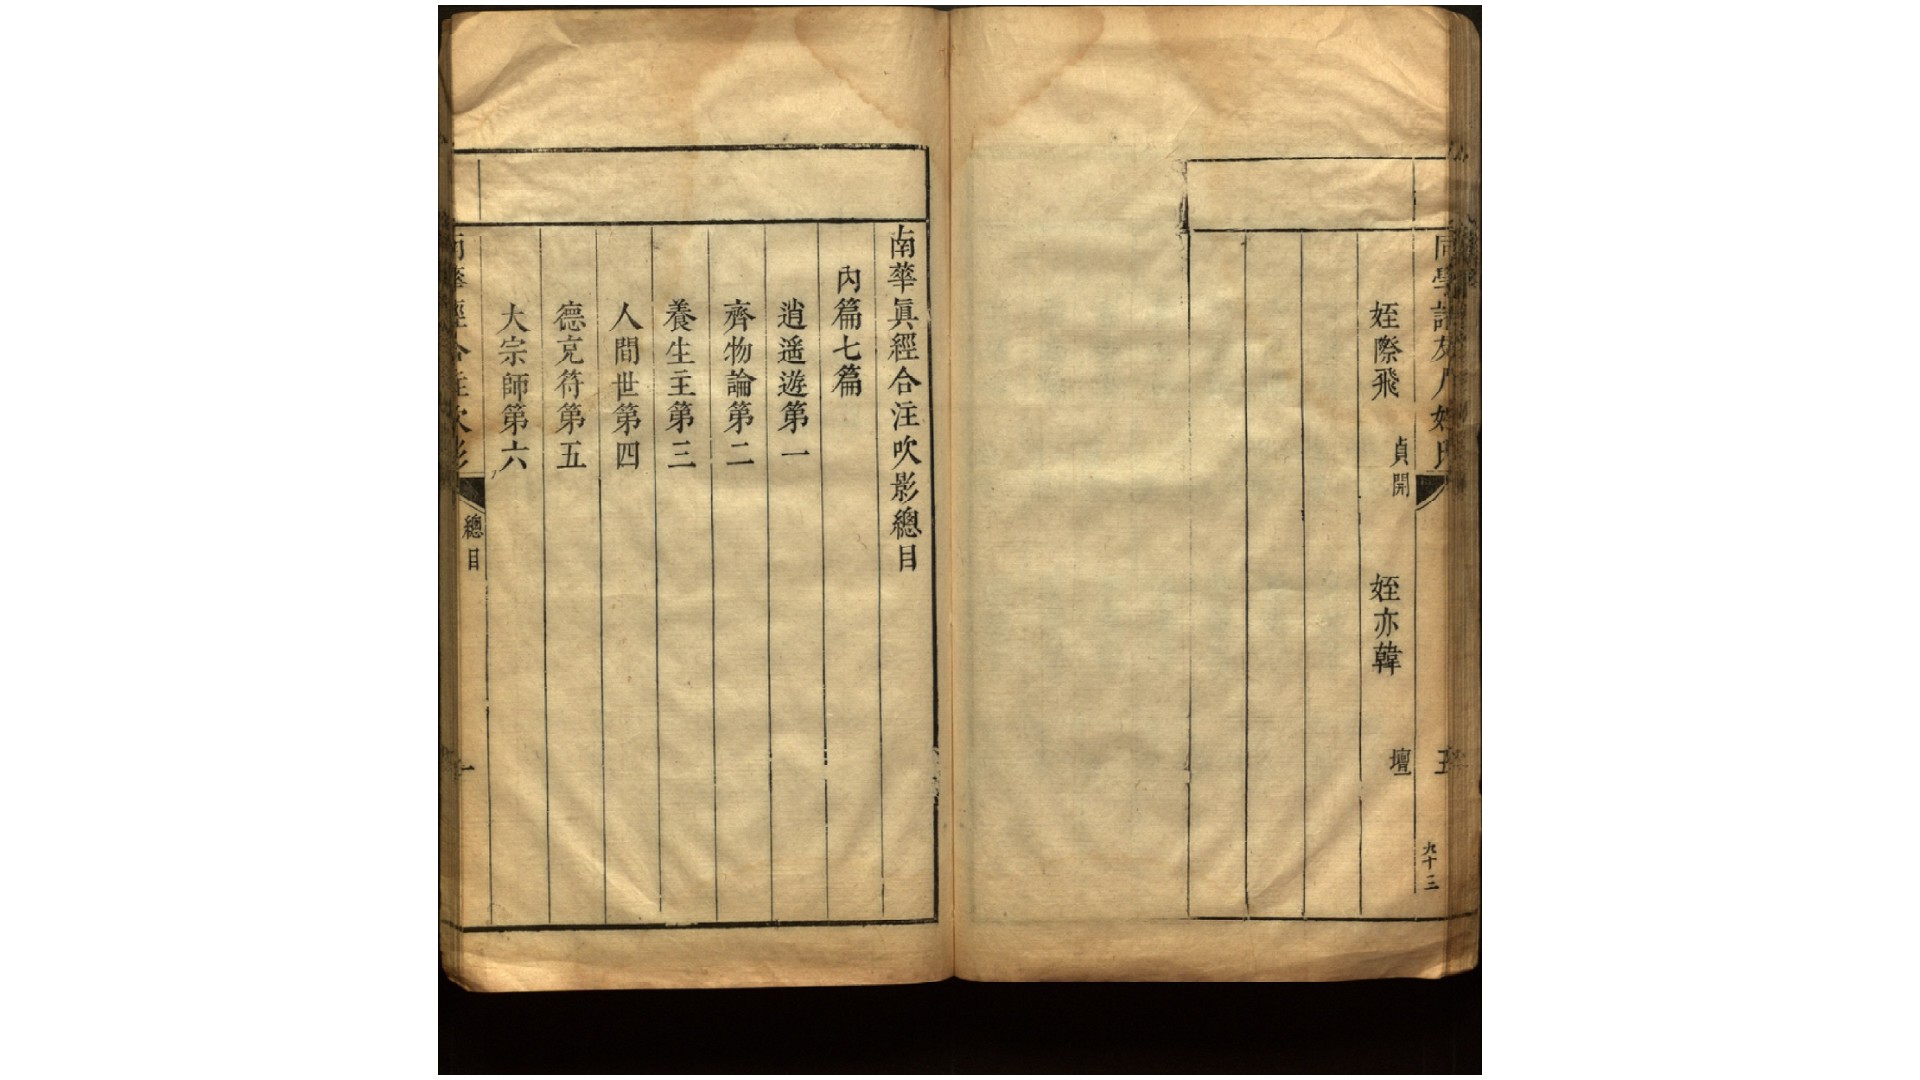 同學諸友人姓氏
五
九十三
姪際飛 貞開 姪亦韓 壇
南華眞經合注吹影總目
內篇七篇
逍遙遊第一
齊物論第二
養生主第三
人間世第四
德充符第五
大宗師第六
南華經合注吹影
總目
一